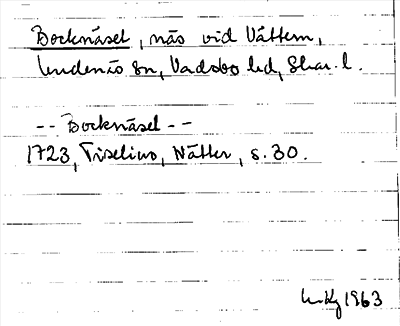 Bocknäset, näs vid Vättern,
Undenäs sn, Vadsbo hd, Skar. l.
-- Bocknäset --
1723, Tiselius, Wätter, s. 30.
1963